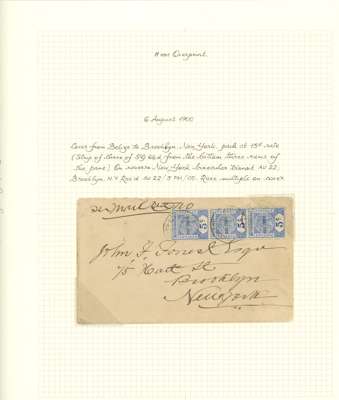 Overprint
6 August 1900
Cover from Belize to Brooklyn, New York, pack at 15¢ rate
(Strip of three of from the bottom three rows of
the pane) On reverse New York transit AU 22,
Brooklyn, N.Y Rec'd AU 22 / 5 PM / 00. Rare multiple on cover
5 5 5
John J. Forrest Esqr
75 Hart St
Brooklyn
New York